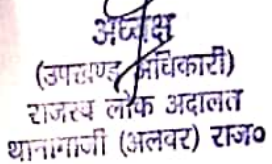 अध्यक्ष
(उपखण्ड अधिकारी)
राजस्व लोक अदालत
थानागाजी (अलवर) राज०